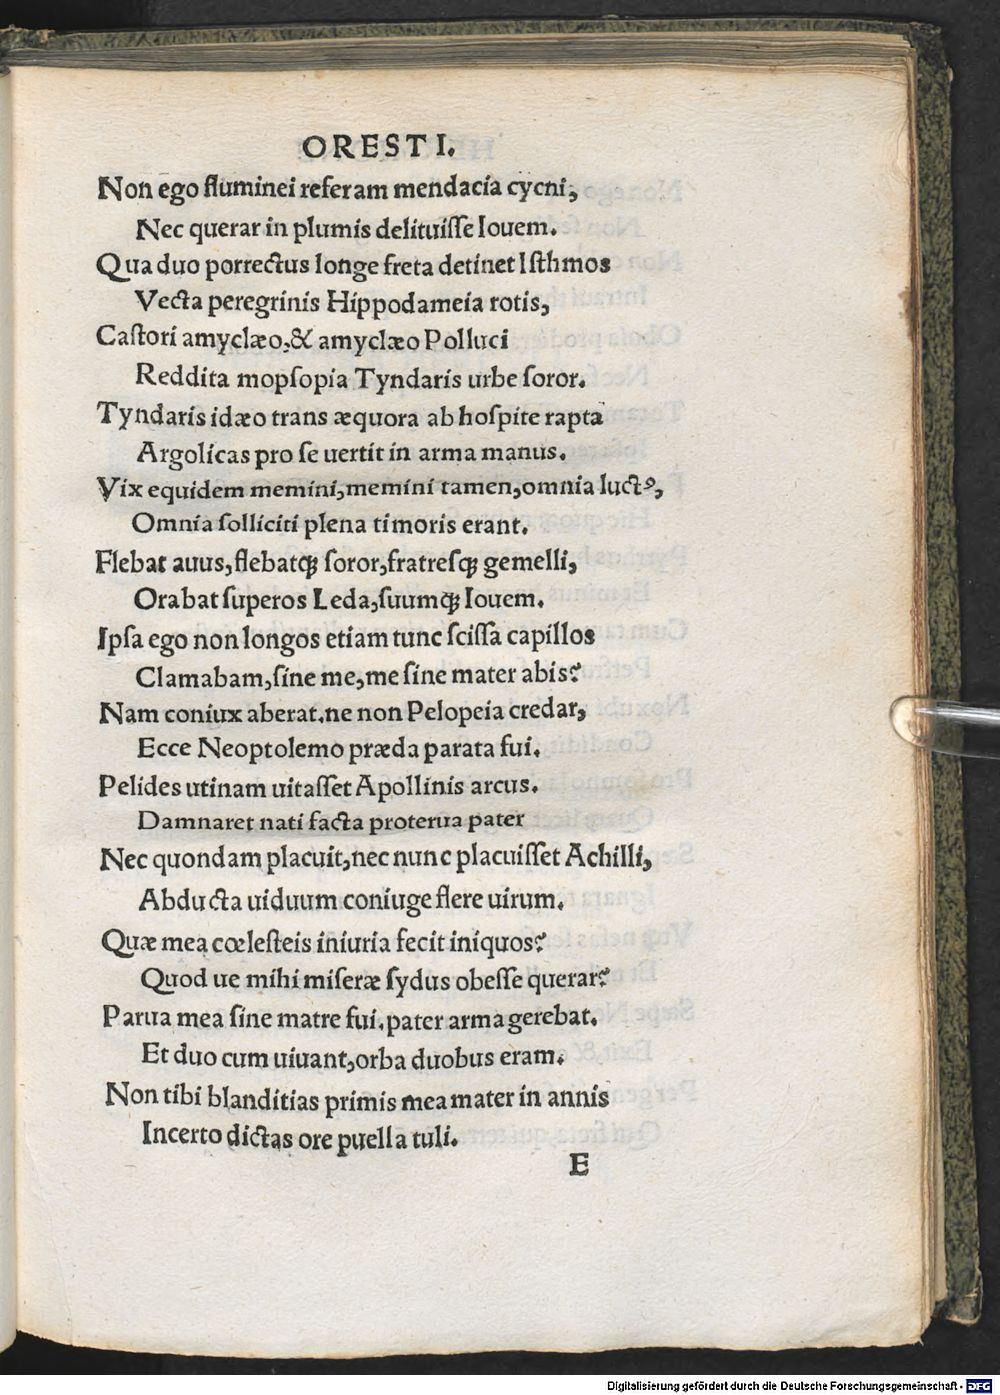 ORESTI.
Non ego fluminei referam mendacia cycni,
Nec querar in plumis delituiſſe Iouem.
Qua duo porrectus longe freta detinet Iſthmos
Vecta peregrinis Hippodameia rotis,
Caſtori amyclæo,& amyclæo Polluci
Reddita mopſopia Tyndaris urbe ſoror.
Tyndaris idæo trans æquora ab hoſpite rapta
Argolicas pro ſe uertit in arma manus.
Vix equidem memini,memini tamen,omnia luctꝰ,
Omnia ſolliciti plena timoris erant.
Flebat auus,flebatq; ſoror,fratreſq; gemelli,
Orabat ſuperos Leda,ſuumq; Iouem.
Ipſa ego non longos etiam tunc ſciſſa capillos
Clamabam,ſine me,me ſine mater abis?
Nam coniux aberat.ne non Pelopeia credar,
Ecce Neoptolemo præda parata fui.
Pelides utinam uitaſſet Apollinis arcus.
Damnaret nati facta proterua pater
Nec quondam placuit,nec nunc placuiſſet Achilli,
Abducta uiduum coniuge flere uirum.
Quæ mea cœleſteis iniuria fecit iniquos?
Quod ue mihi miſeræ ſydus obeſſe querar?
Parua mea ſine matre fui.pater arma gerebat.
Et duo cum uiuant,orba duobus eram.
Non tibi blanditias primis mea mater in annis
Incerto dictas ore puella tuli.
E
Digitalisierung gefördert durch die Deutsche Forschungsgemeinschaft - DFG